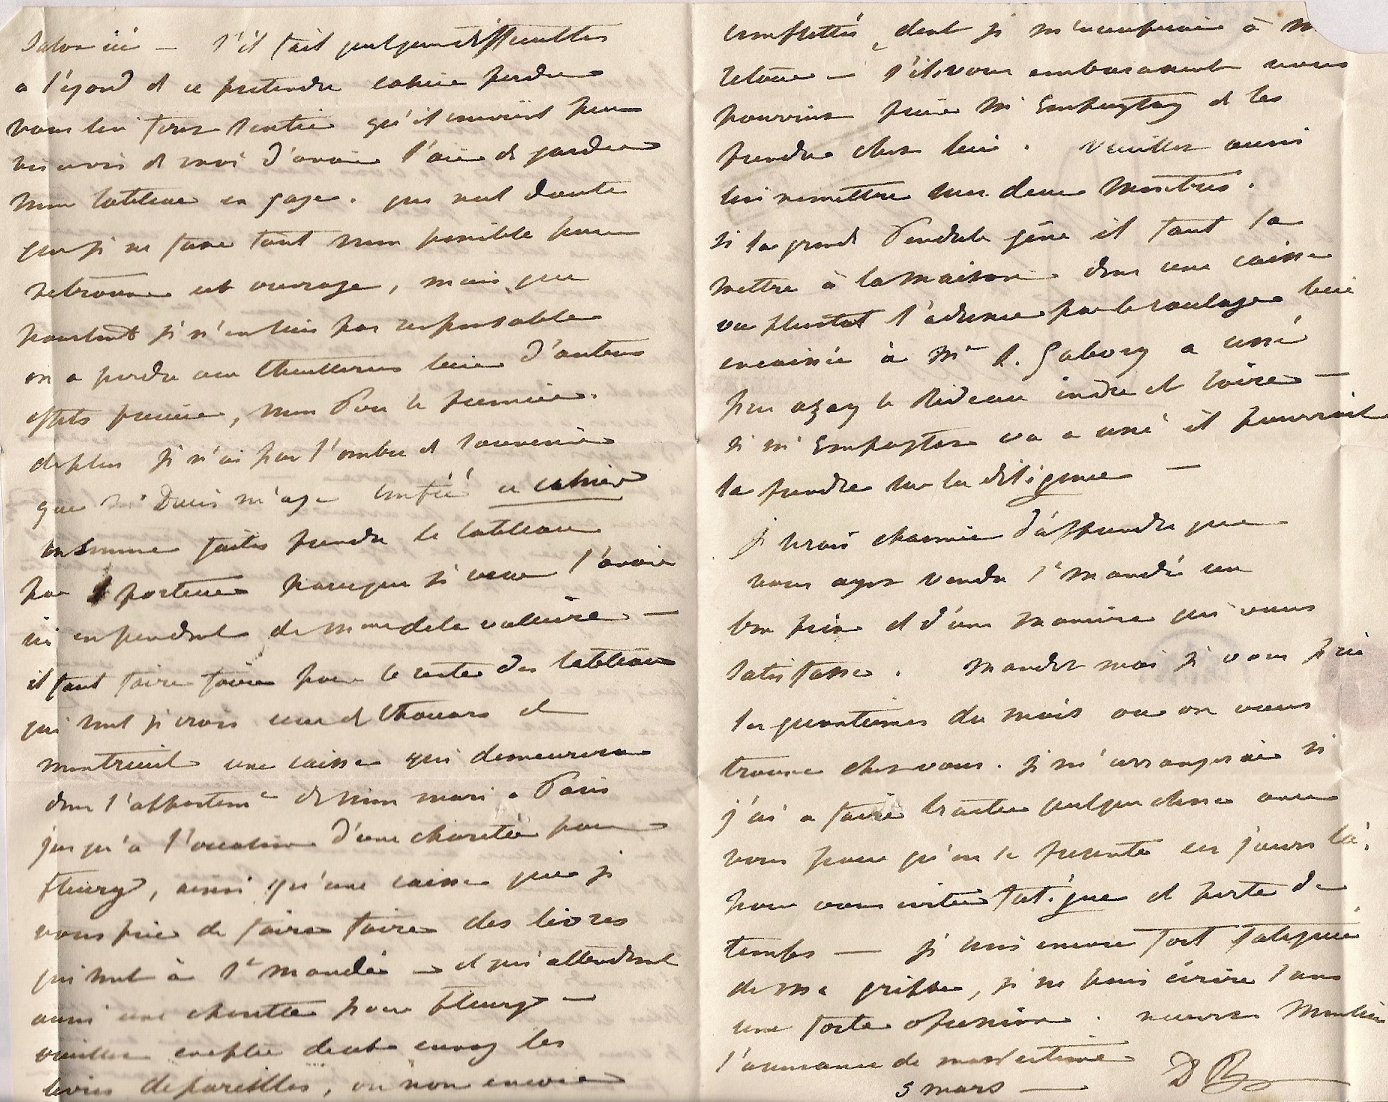 Salon ici — s'il fait quelque difficultés
a l'égard de ce pretendu cahier perdu
vous lui ferez sentir qu'il convient peu
de moi d'avoir l'air de garder
mon tableau en gage. que nul doute
que je ne fasse tout mon possible pour
retrouver cet ouvrage, mais que
pourtant je n'en suis pas responsable
on a perdu aux thuilleries bien d'autres
effets, mon le premier.
de plus je n'ai pas l'ombre de souvenir
que Mr Ducis m'aye confié ce cahier
en somme faites prendre le tableau
par 1 porteur parceque je veux l'avoir
ici en pendant de Mme de la valiere —
il faut faire faire pour le reste des tableaux
qui sont je crois ceux de thouars et
montreuil une caisse qui demeurera
dans l'appartemt de mon mari a Paris
jusqu'à l'occasion d'une charette pour
fleury, ainsi qu'une caisse que je
vous prie de faire faire des livres
qui sont à St mandé — et qui attendront
aussi une charette pour fleury —
veuillez les
livres dépareillés, ou non encore
complettés, dont je m'occuperai à m
retour — s'ils vous embarassent vous
pourriez prier Mr Empaytaz de les
prendre chez lui. Veuillez aussi
lui remettre mes deux montres.
si la grande Pendule gêne il faut la
mettre à la maison dans une caisse
ou plustot l'adresser par le roulage bien
encaissée à Mr A. Gabory a ussé
par azay le Rideau indre et loire —
si mr Empaytaz va a ussé il pourrait
la prendre sur la diligence —
je serais charmée d'apprendre que
vous ayez vendu St Mandé un
bon prix et d'une maniere qui vous
satisfasse. Mandez moi je vous prie
les quantiemes du mois ou on vous
trouve chez vous. je m'arrangerai si
j'ai a faire traiter quelque chose avec
vous pour qu'on se presente ces jours là.
pour vous eviter fatigue et perte de
temps — je suis encore fort fatiguée
de ma grippe, je ne puis écrire sans
une forte opression. recevez Monsieur
l'assurance de mon estime
5 mars — D R